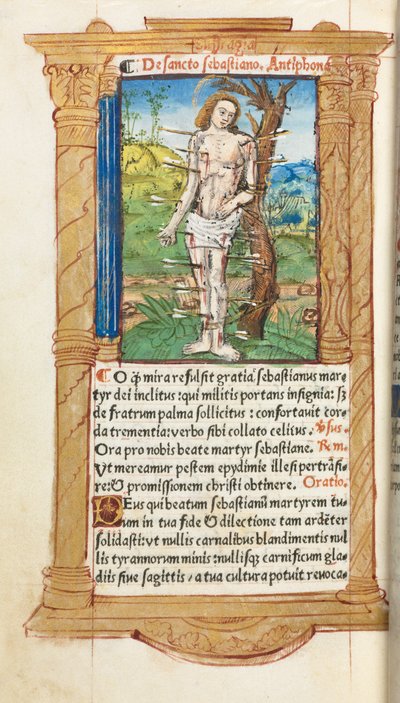 De sancto sebastiano. Antiphona
O q̄ mira refulsit gratia! sebastianus mar-
tyr dei inclitus : qui militis portans insignia: sʒ
de fratrum palma sollicitus : confortauit cor-
da trementia: verbo sibi collato celitus. v̄sus
Ora pro nobis beate martyr sebastiane. Rem
Vt mereamur pestem epydimie illesi pertrāsi-
re: & promissionem christi obtinere. Oratio.
DEus qui beatum sebastianū martyrem tu-
um in tua fide & dilectione tam ardēter
solidasti: vt nullis carnalibus blandimentis nul
lis tyrannorum minis : nullisqʒ carnificum gla-
diis siue sagittis / a tua cultura potuit reuoca-